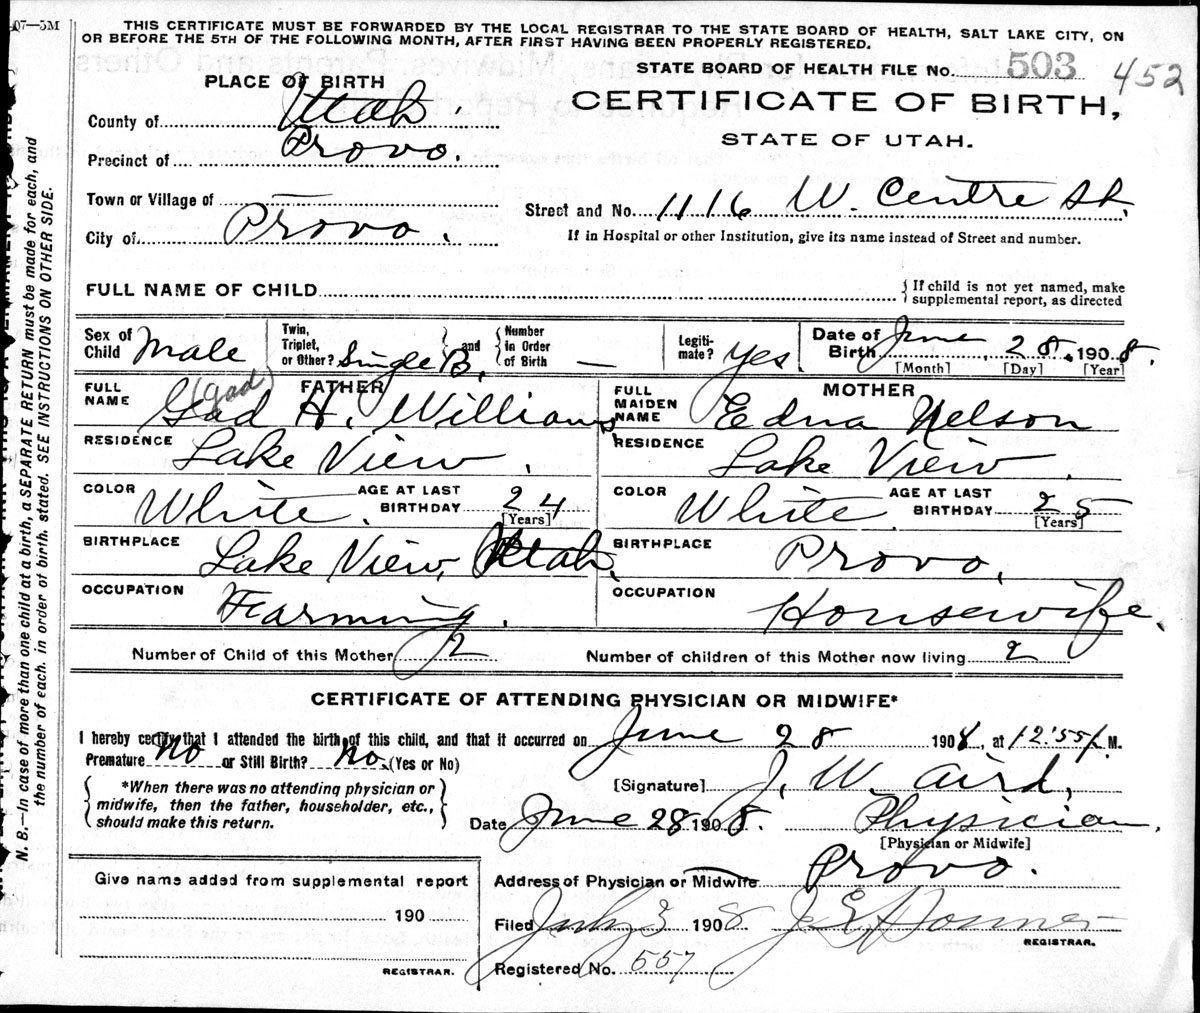 07—5M
THIS CERTIFICATE MUST BE FORWARDED BY THE LOCAL REGISTRAR TO THE STATE BOARD OF HEALTH, SALT LAKE CITY, ON
OR BEFORE THE 5TH OF THE FOLLOWING MONTH, AFTER FIRST HAVING BEEN PROPERLY REGISTERED.
STATE BOARD OF HEALTH FILE No. 503 452
PLACE OF BIRTH
CERTIFICATE OF BIRTH,
STATE OF UTAH.
County of Utah.
Precinct of Provo.
Town or Village of —
Street and No. 1116 W. Centre St.
City of Provo.
If in Hospital or other Institution, give its name instead of Street and number.
FULL NAME OF CHILD
{If child is not yet named, make
supplemental report, as directed
Sex of Child Male
Twin, Triplet, or Other? Single B. and Number in Order of Birth —
Legitimate? Yes
Date of Birth June 28. 1908.
[Month] [Day] [Year]
FATHER
FULL NAME (Gad) Gad H. Williams
MOTHER
FULL MAIDEN NAME Edna Nelson
RESIDENCE Lake View.
RESIDENCE Lake View.
COLOR White. AGE AT LAST BIRTHDAY 24 [Years]
COLOR White. AGE AT LAST BIRTHDAY 25 [Years]
BIRTHPLACE Lake View, Utah.
BIRTHPLACE Provo.
OCCUPATION Farming.
OCCUPATION Housewife.
Number of Child of this Mother 2
Number of children of this Mother now living 2
CERTIFICATE OF ATTENDING PHYSICIAN OR MIDWIFE*
I hereby certify that I attended the birth of this child, and that it occurred on June 28 1908, at 12:55 M.
Premature No or Still Birth? No. (Yes or No)
{*When there was no attending physician or
midwife, then the father, householder, etc.,
should make this return.}
[Signature] J. W. Aird,
Date June 28 1908. Physician.
[Physician or Midwife]
Address of Physician or Midwife Provo.
Give name added from supplemental report
190
REGISTRAR.
Filed July 3 1908
REGISTRAR.
Registered No. 557
N. B.—In case of more than one child at a birth, a SEPARATE RETURN must be made for each, and
the number of each. in order of birth, stated. SEE INSTRUCTIONS ON OTHER SIDE.